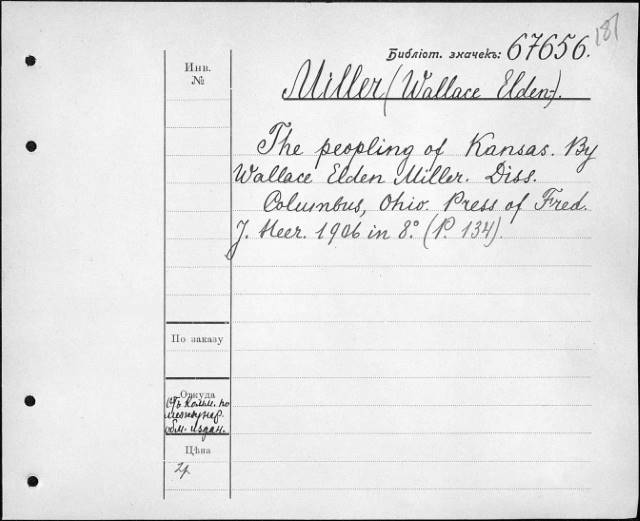 187
Библіот. значекъ: 67656.
Инв.
№
Miller (Wallace Elden).
The peopling of Kansas. By
Wallace Elden Miller. Diss.
Columbus, Ohio. Press of Fred.
J. Heer. 1906 in 8º. (P. 134).
По заказу
Откуда
по
междунар.
обм. издан.
Цѣна